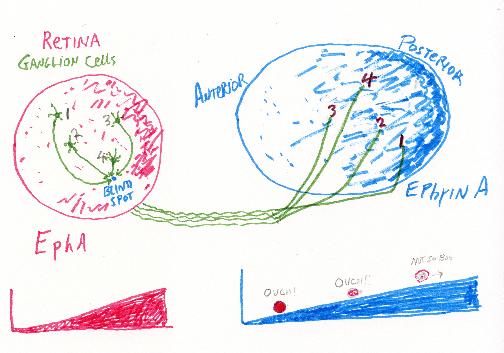 RETINA
GANGLION Cells
1
2
3
4
BLIND
SPOT
EphA
ANTERIOR
POSTERIOR
4
3
2
1
EPhRIN A
OUCH!
OUCH!!
NOT SO BAD